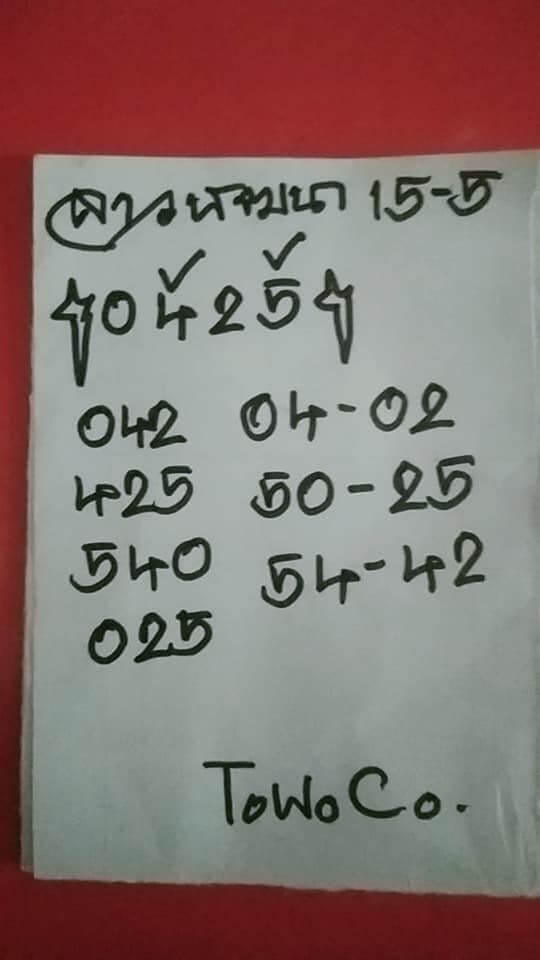 สาวพัฒนา 15-5
0425
042 04-02
425 50-25
540 54-42
025
ToWoCo.